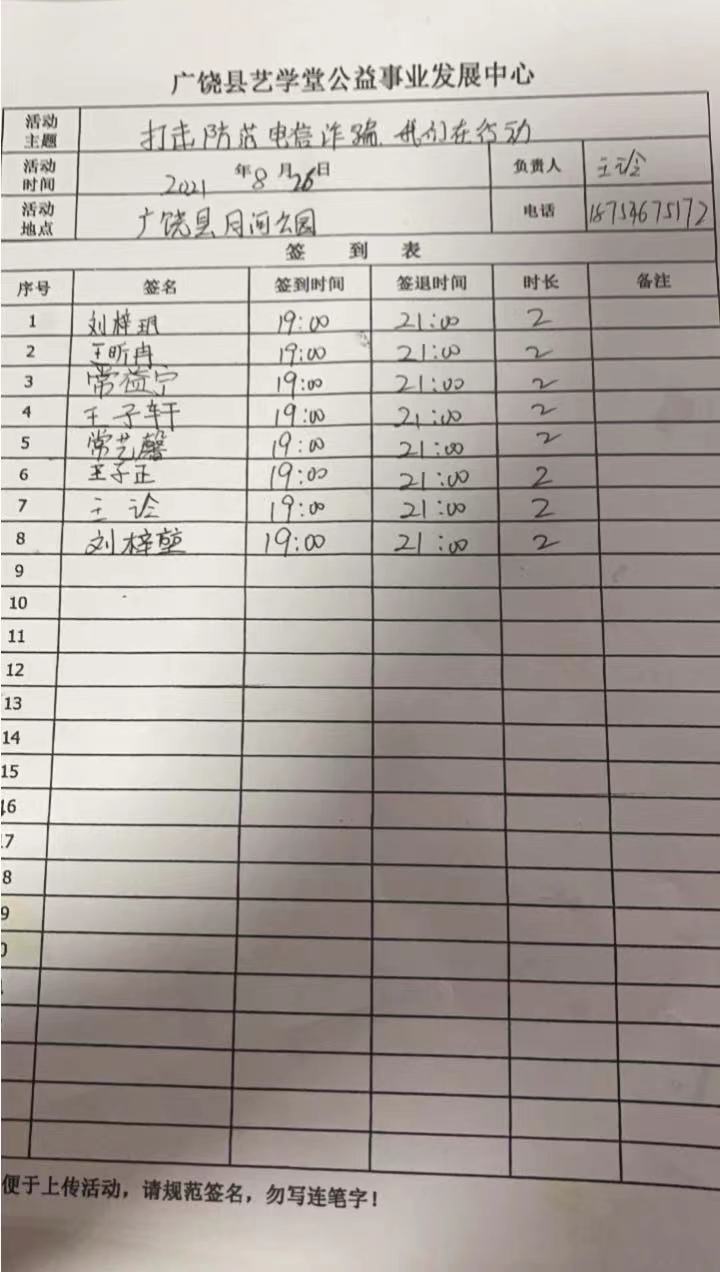 广饶县艺学堂公益事业发展中心
活动主题 打击防范电信诈骗.我们在行动
活动时间 2021年8月26日 负责人 王诊
活动地点 广饶县月河公园 电话 18754675172
签 到 表
序号 签名 签到时间 签退时间 时长 备注
1 刘梓玥 19:00 21:00 2
2 王昕冉 19:00 21:00 2
3 常益宁 19:00 21:00 2
4 王子轩 19:00 21:00 2
5 常艺馨 19:00 21:00 2
6 王子正 19:00 21:00 2
7 王诊 19:00 21:00 2
8 刘梓堃 19:00 21:00 2
9
10
11
12
13
14
15
16
17
8
9
0
便于上传活动，请规范签名，勿写连笔字！